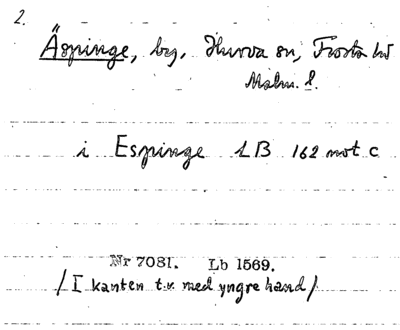 2.
Äspinge, by, Hurva sn, Frosta hd
Malm. l.
i Espinge LB 162 not c
Nr 7081. Lb 1569.
/I kanten t.v. med yngre hand/